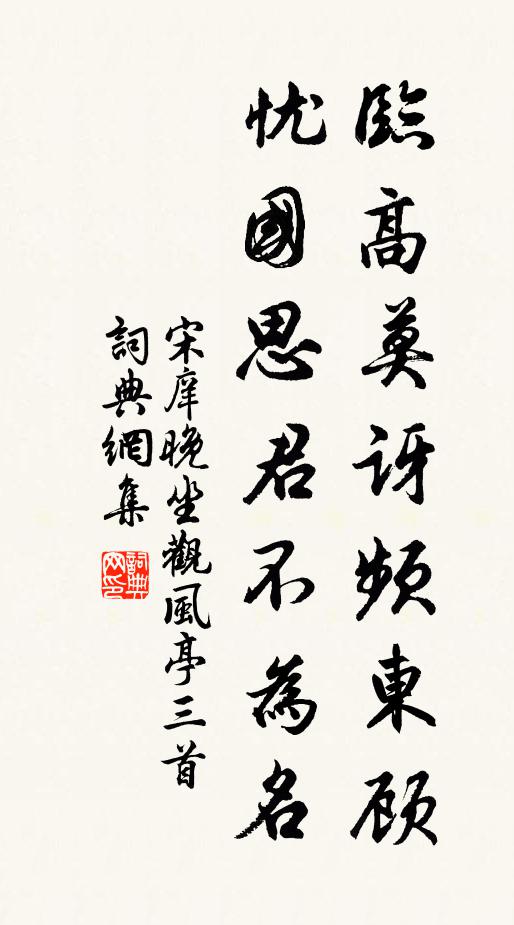 臨高莫訝頻東顾
忧國思君不為名
宋庠晚坐觀風亭三首
詞典網集
詞典网印